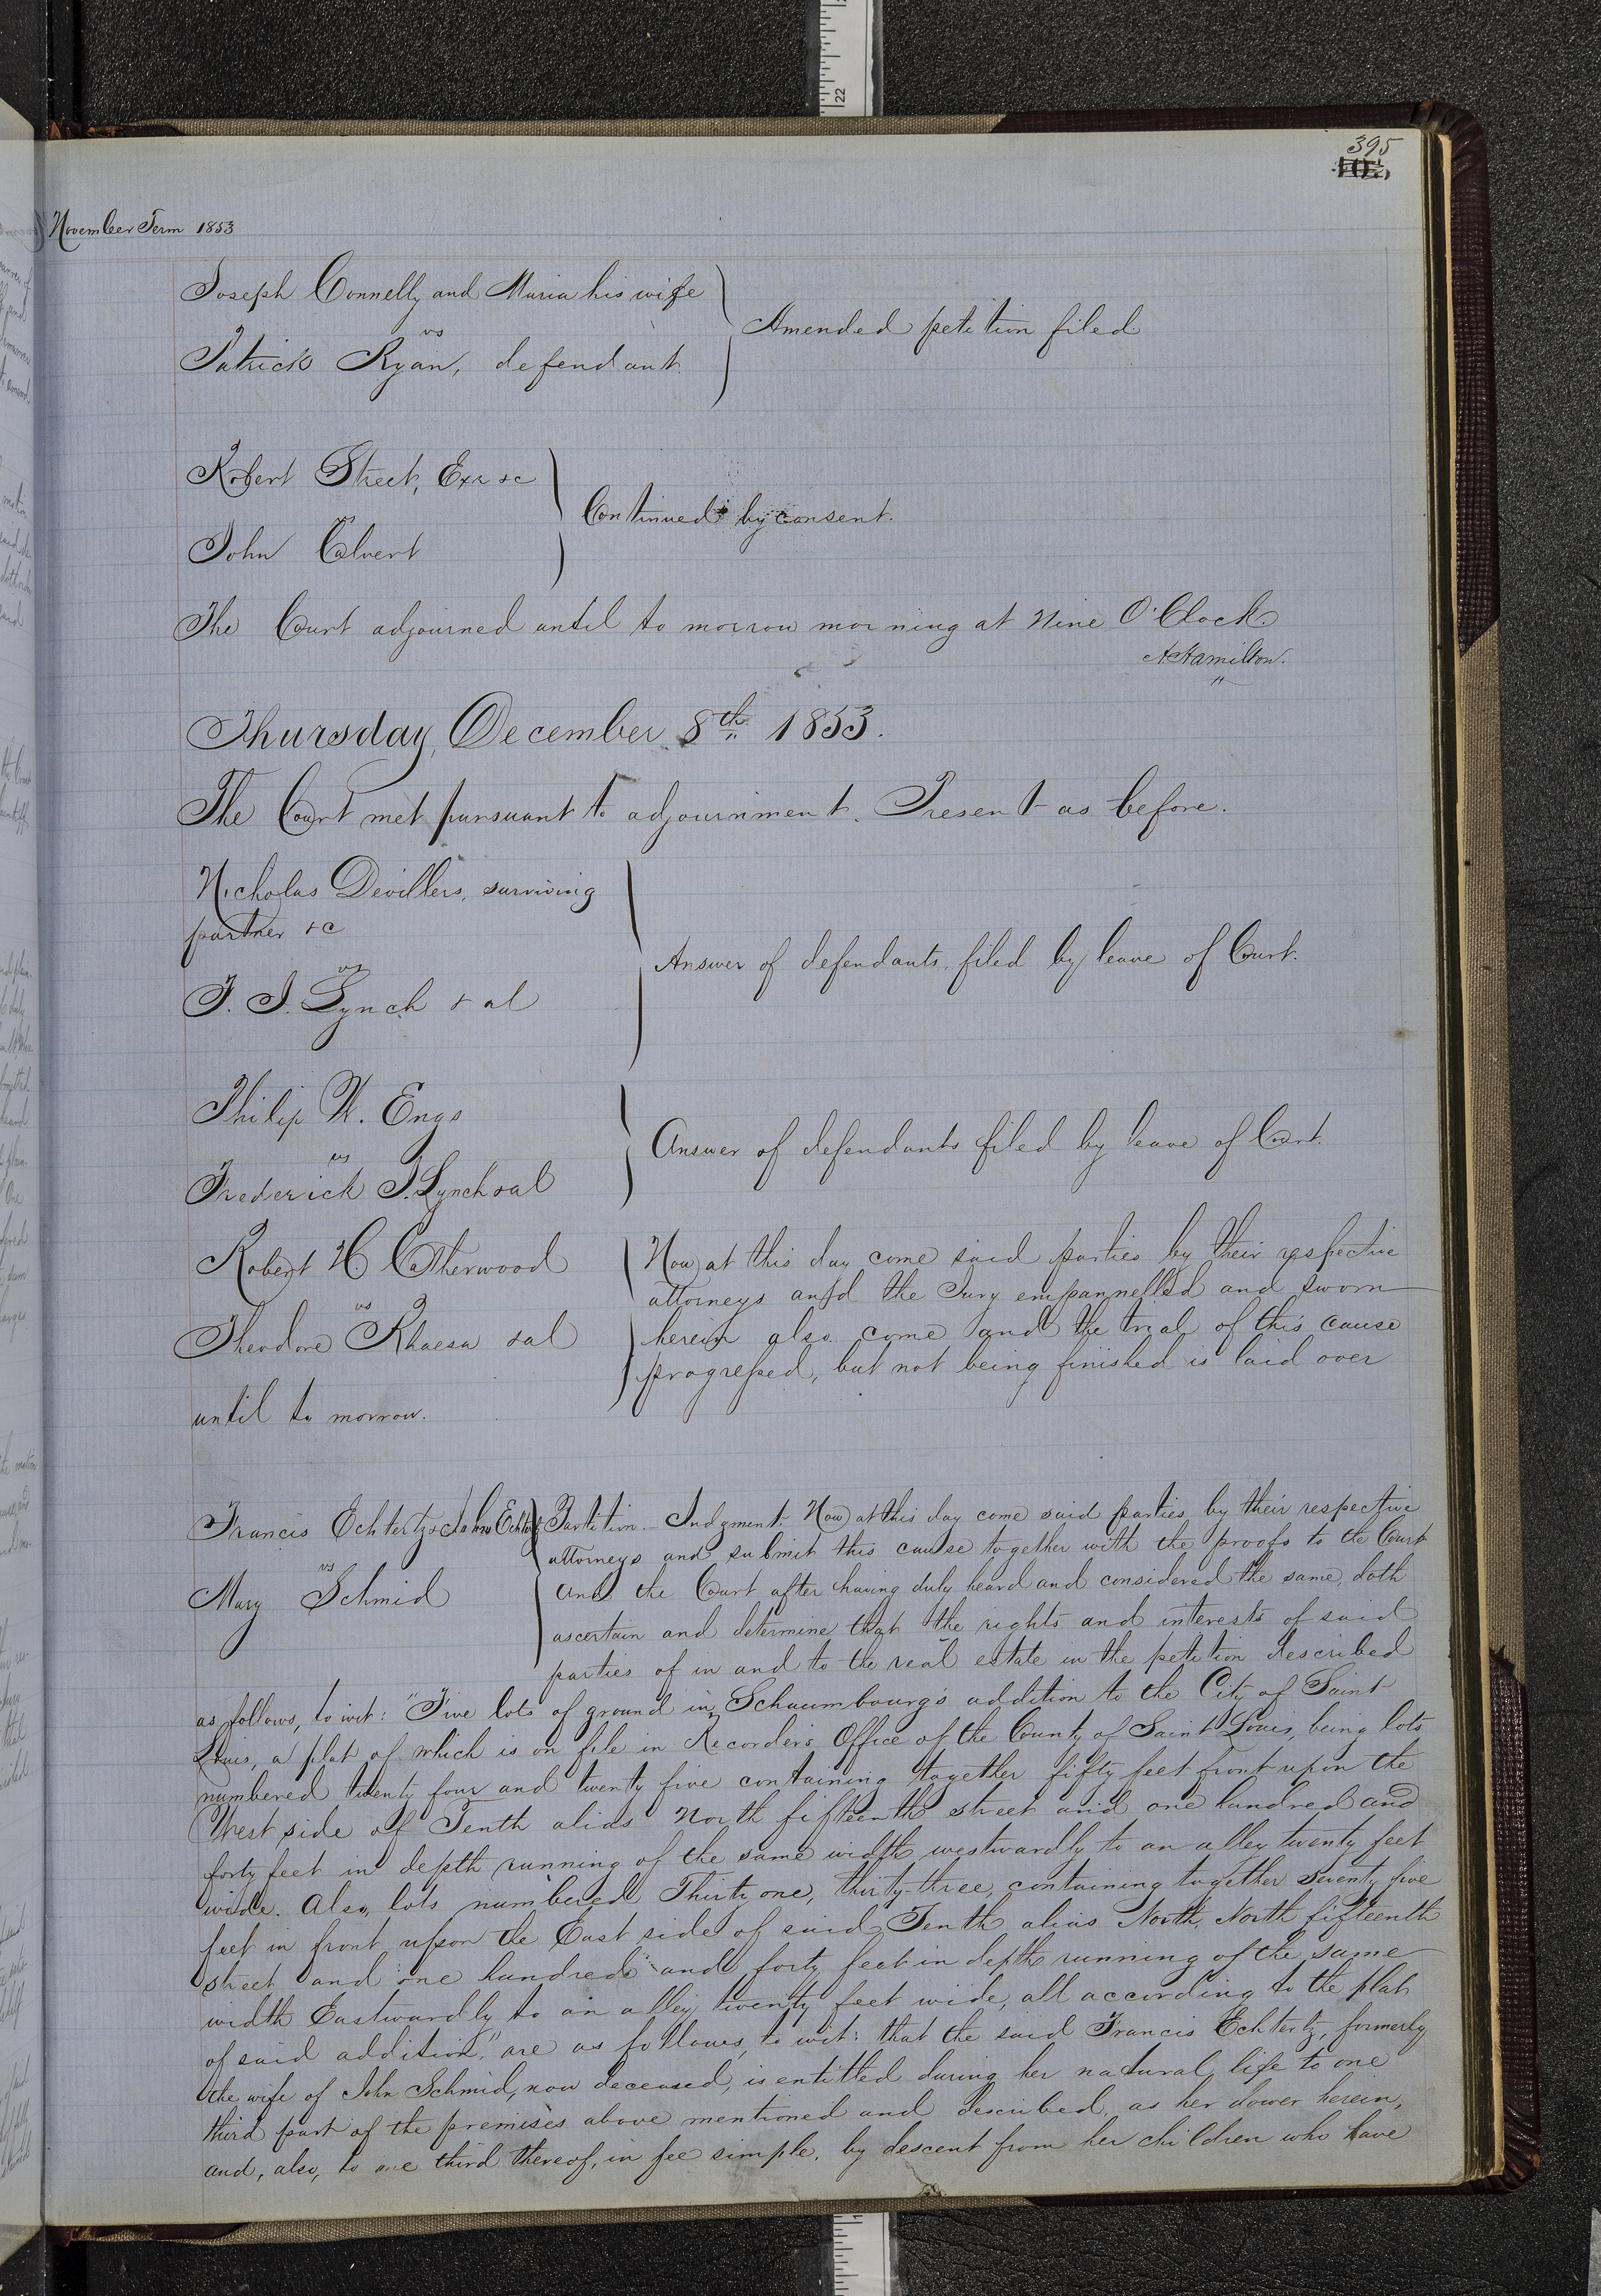 395
November Term 1853
Joseph Connelly and Maria his wife
vs
Amended petition filed
Patrick Ryan, defendant.
Robert Street, Exr &c
vs
Continued by consent.
John Calvert
The Court adjourned until to morrow morning at Nine O'Clock.
A. Hamilton.
Thursday, December 8th 1853.
The Court met pursuant to adjournment. Present as before.
Nicholas Devillers, surviving
partner &c
vs
Answer of defendants, filed by leave of Court.
F. J. Lynch & al
Philip W. Engs
vs
Answer of defendants filed by leave of Court.
Frederick J. Lynch & al
Robert H Catherwood
vs
Theodore Rhaesa & al
Now at this day come said parties by their respective
attorneys and the Jury empannelled and sworn
herein also come and the trial of this cause
progressed, but not being finished is laid over
until to morrow.
Francis Echtertz & John Echtertz
vs
Mary Schmid
Partition. Judgment. Now at this day come said parties, by their respective
attorneys and submit this cause together with the proofs to the Court
and the Court after having duly heard and considered the same, doth
ascertain and determine that the rights and interests of said
parties of in and to the real estate in the petition described
as follows, to wit: "Five lots of ground in Schaumbourg's addition to the City of Saint
Louis, a plat of which is on file in Recorder's Office of the County of Saint Louis, being lots
numbered twenty four and twenty five containing together fifty feet front upon the
West side of Tenth alias North fifteenth street and one hundred and
forty feet in depth running of the same width westwardly to an alley twenty feet
wide. Also, lots numbered Thirty one, thirty-three, containing together seventy five
feet in front upon the East side of said Tenth alias North, North fifteenth
street and one hundred and forty feet in depth running of the same
width Eastwardly to an alley twenty feet wide, all according to the plat
of said addition," are as follows, to wit: that the said Francis Echtertz, formerly
the wife of John Schmid, now deceased, is entitled during her natural life to one
third part of the premises above mentioned and described, as her dower herein,
and, also, to one third thereof, in fee simple, by descent from her children who have